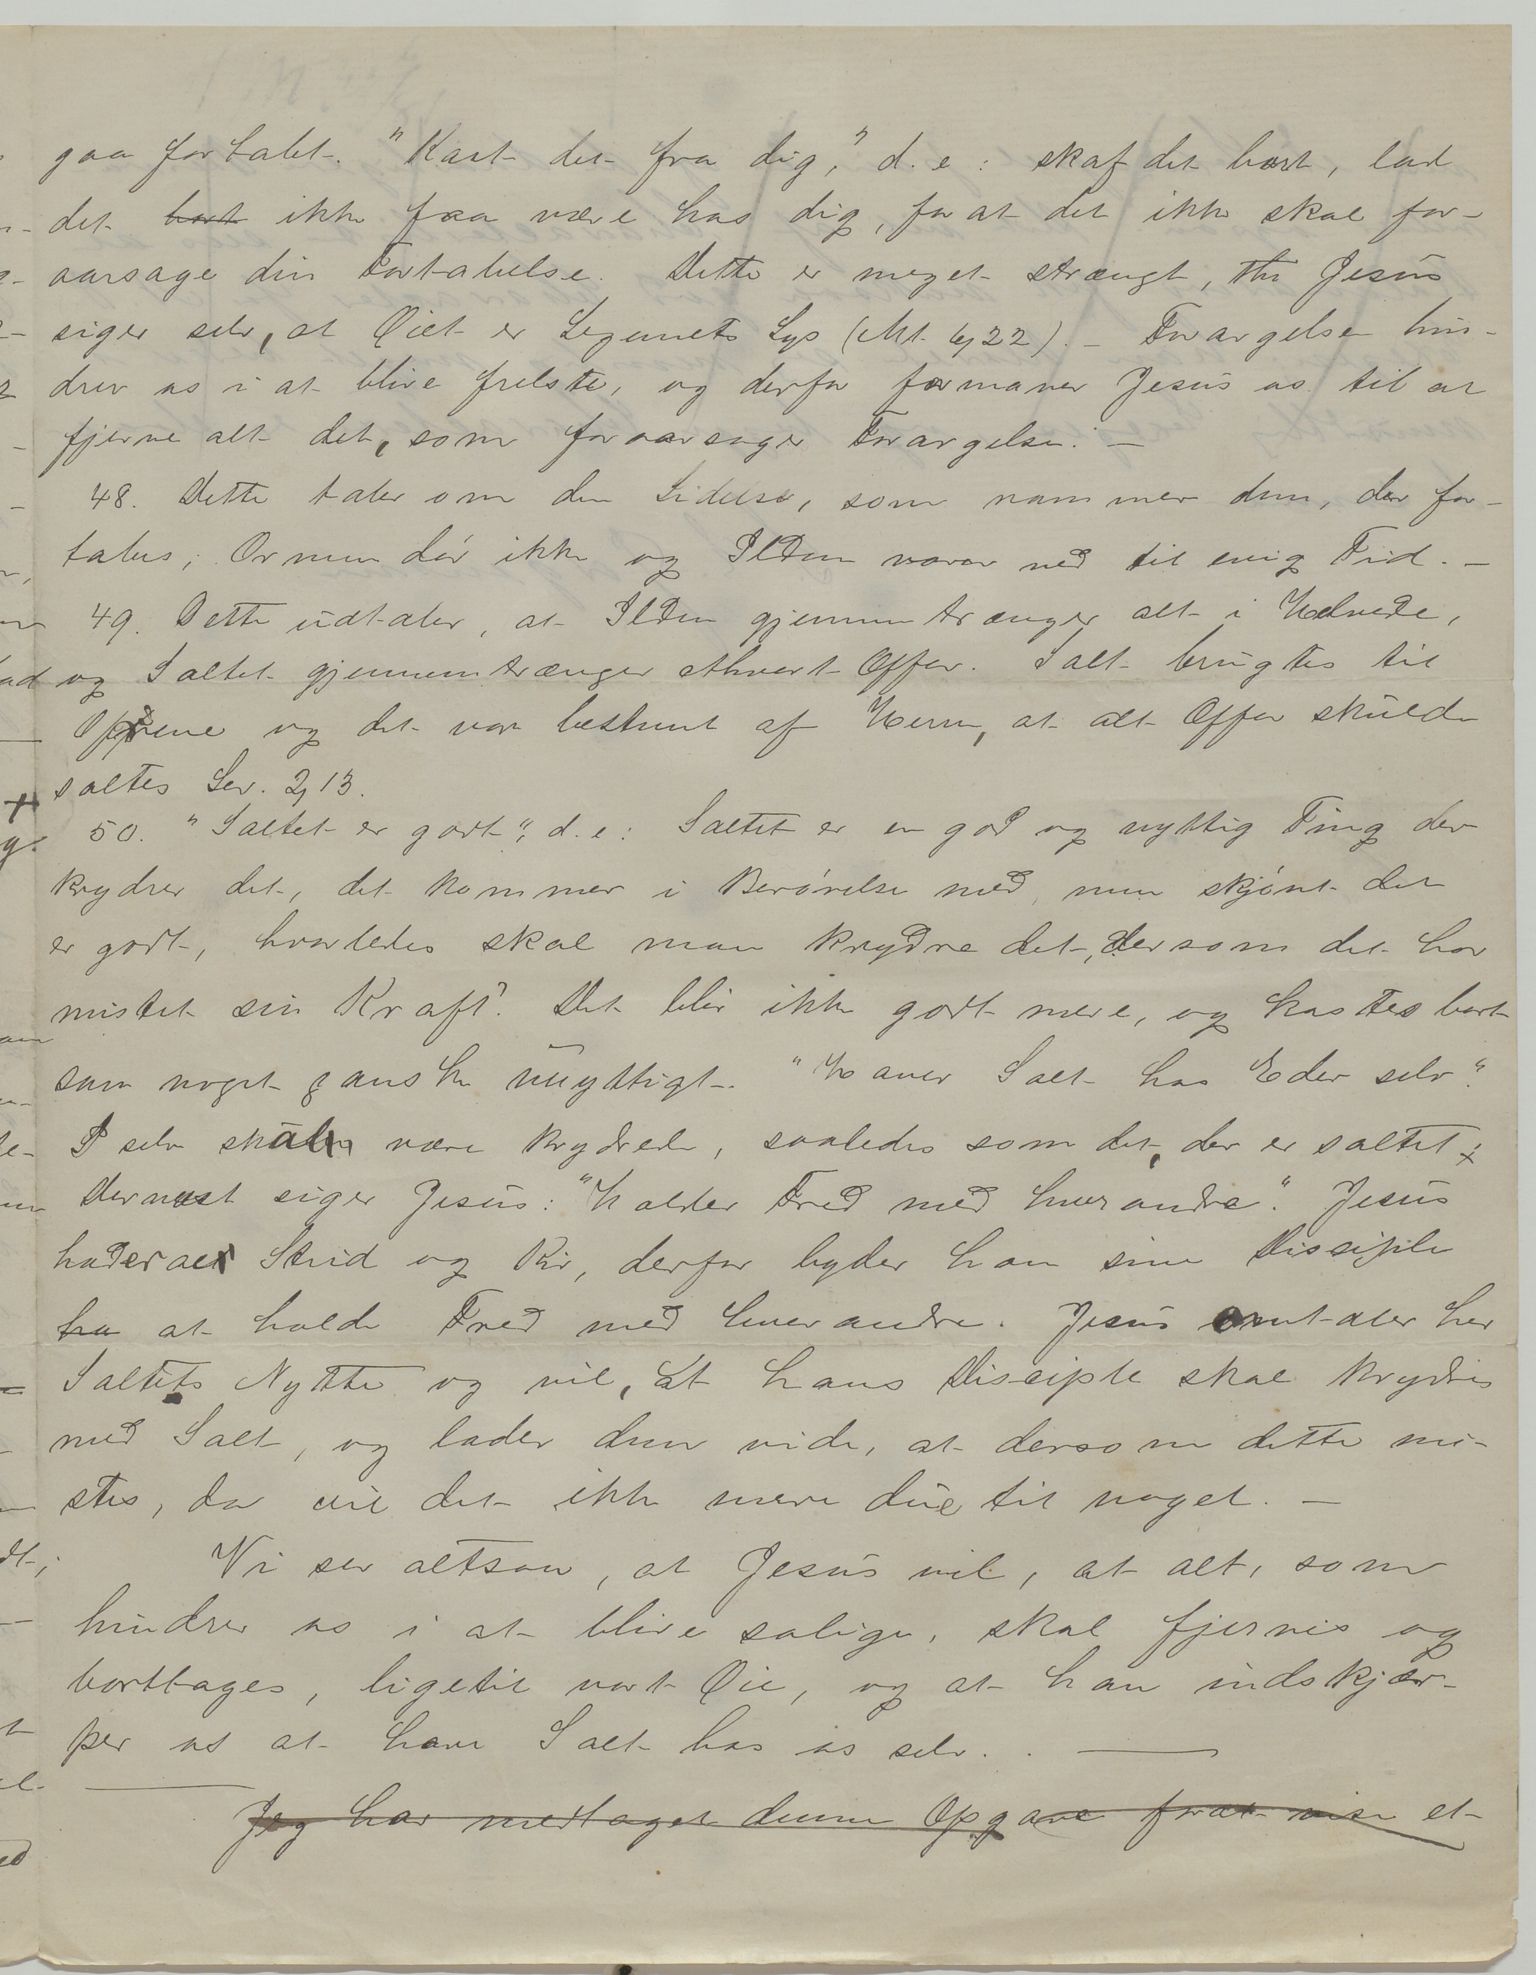 gaa fortabt. "Kast det fra dig," d. e: skaf det bort, lad
det bort ikke faa være hos dig, for at det ikke skal for-
aarsage din Fortabelse. Dette er meget strængt, thi Jesus
siger selv, at Öiet er Legemets Lys (Mt. 6,22). - Forargelsen hin-
drer os i at blive frelste, og derfor formaner Jesus os til at
fjerne alt det, som foraarsager Forargelse. -
48. Dette taler om den Lidelse, som rammer dem, der for-
tabes; Ormen dör ikke og Ilden varer ved til evig Tid. -
49. Dette udtaler, at Ilden gjennemtrænger alt i Helvede,
og Saltet gjennemtrænger ethvert Offer. Salt brugtes til
Ofrene og det var bestemt af Herren, at alt Offer skulde
saltes Lev. 2,13.
50. "Saltet er godt", d. e: Saltet er en god og nyttig Ting der
krydrer det, det kommer i Berörelse med, men skjönt det
er godt, hvorledes skal man krydre det, dersom det har
mistet sin Kraft? Det blir ikke godt mere, og kastes bort
som noget ganske unyttigt. "Haver Salt hos Eder selv".
I selv skulle være krydrede, saaledes som det, der er saltet;
Dernæst siger Jesus: "holder Fred med hverandre". Jesus
hader al Strid og Kiv, derfor byder han sine Disciple
ha at holde Fred med hverandre. Jesus omtaler her
Saltets Nytte og vil, at hans Disciple skal krydres
med Salt, og lader dem vide, at dersom dette mi-
stes, da vil det ikke mere due til noget. -
Vi ser altsaa, at Jesus vil, at alt, som
hindrer os i at blive salige, skal fjernes og
borttages, ligetil vort Öie, og at han indskjær-
per os at have Salt hos os selv. . -
Jeg har medtaget denne Opgave forat vise et